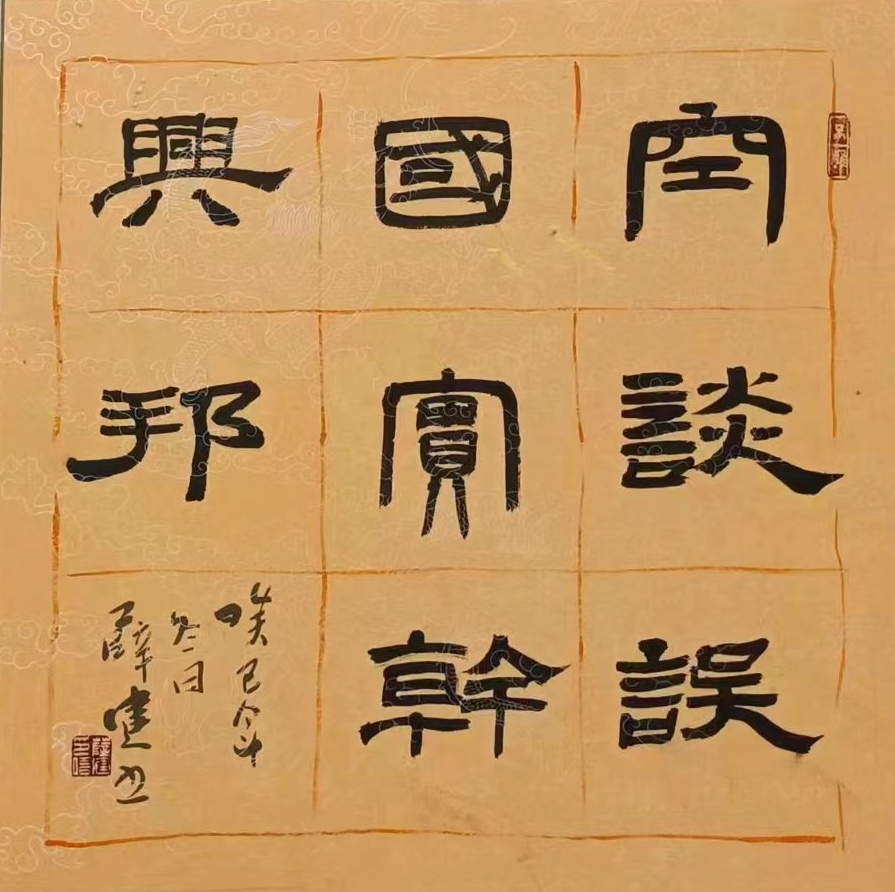 空談誤
國實幹
興邦
巳
冬日
薛建书